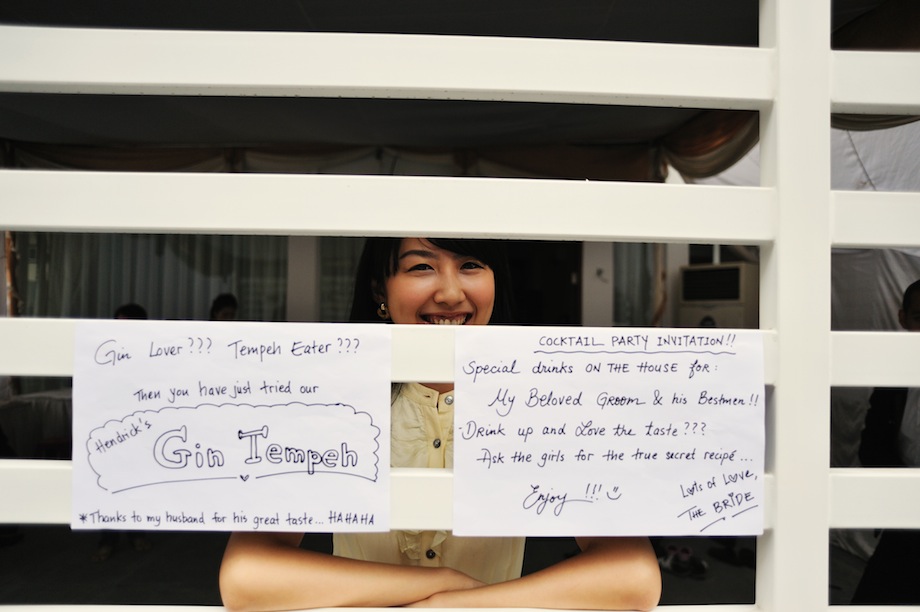 Gin Lover??? Tempeh Eater???
Then you have just tried our
Hendrick's
Gin Tempeh
*Thanks to my husband for his great taste... HAHAHA
COCKTAIL PARTY INVITATION!!
Special drinks ON THE HOUSE FOR:
My Beloved GROOM & his Bestmen!!
Drink up and Love the taste???
Ask the girls for the true secret recipé...
Enjoy!!!
Lots of Love,
THE BRIDE